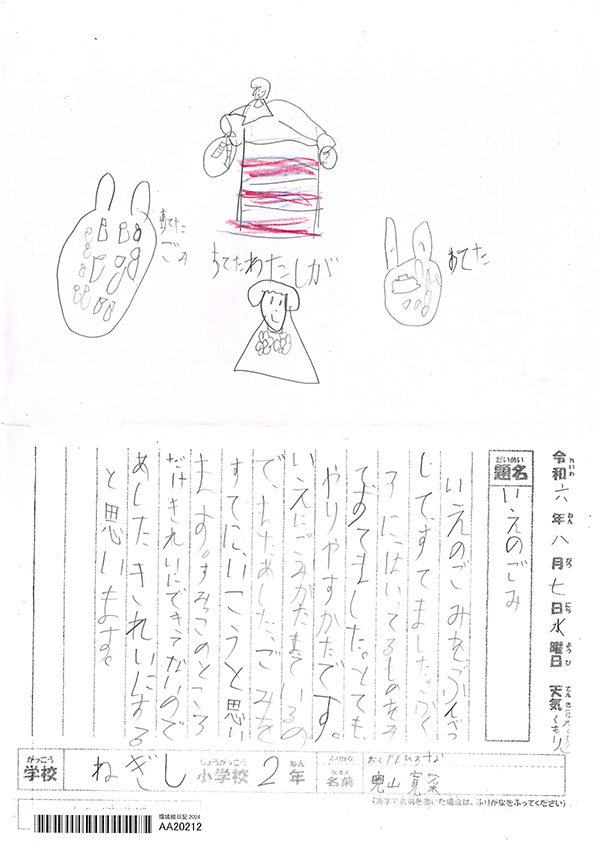 すてた
ごみ
すてたわたしが
すてた
令和六年八月七日水曜日 天気 くもり
題名
いえのごみ
いえのごみをぶんべつ
して、すてました。ふく
ろにはいってるものをそ
とても
やりやすかたです。
いえにごみがたまているの
で、またあした、ごみを
すてに、いこうと思い
ます。すみっこのところ
だけきれいにできてないので
あしたきれいにする
と思います。
がっこう
学校
ねぎし
しょうがっこう
小学校
2
ねん
年
ふりがな
なまえ
名前
(漢字で名前を書いた場合は、ふりがなをふってください)
環境絵日記 2024
AA20212